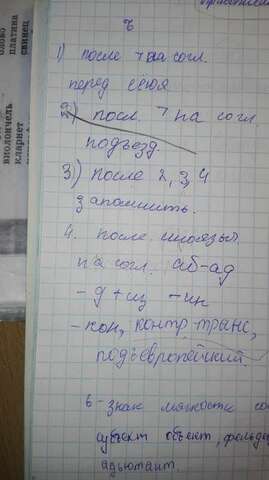 олово
платина
свинец
виолончель
кларнет
ъ
1) после ¬ на согл.
перед еёюя
2) посл. ¬ на согл.
подъезд.
3) после 2, 3, 4
запомнить.
4. после иноязыч.
на согл. аб-ад
- д + из - ин
- кон, контр-транс,
подъевропейский.
ь - знак мягкости со
субъект объект, фельд
адъютант.